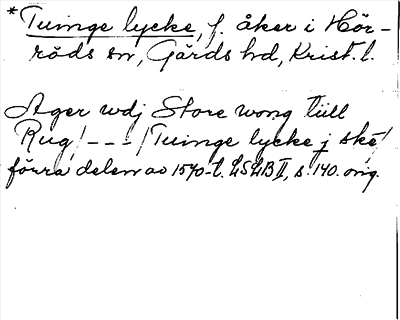 *Tuinge lycke, f. åker i Hör-
röds sn, Gärds hd, Krist. l.
Ager wdj Store wong tiill
Rug/---/Tuinge lycke j ske/
förra delen av 1570-t. LSLB II, s. 140. orig.